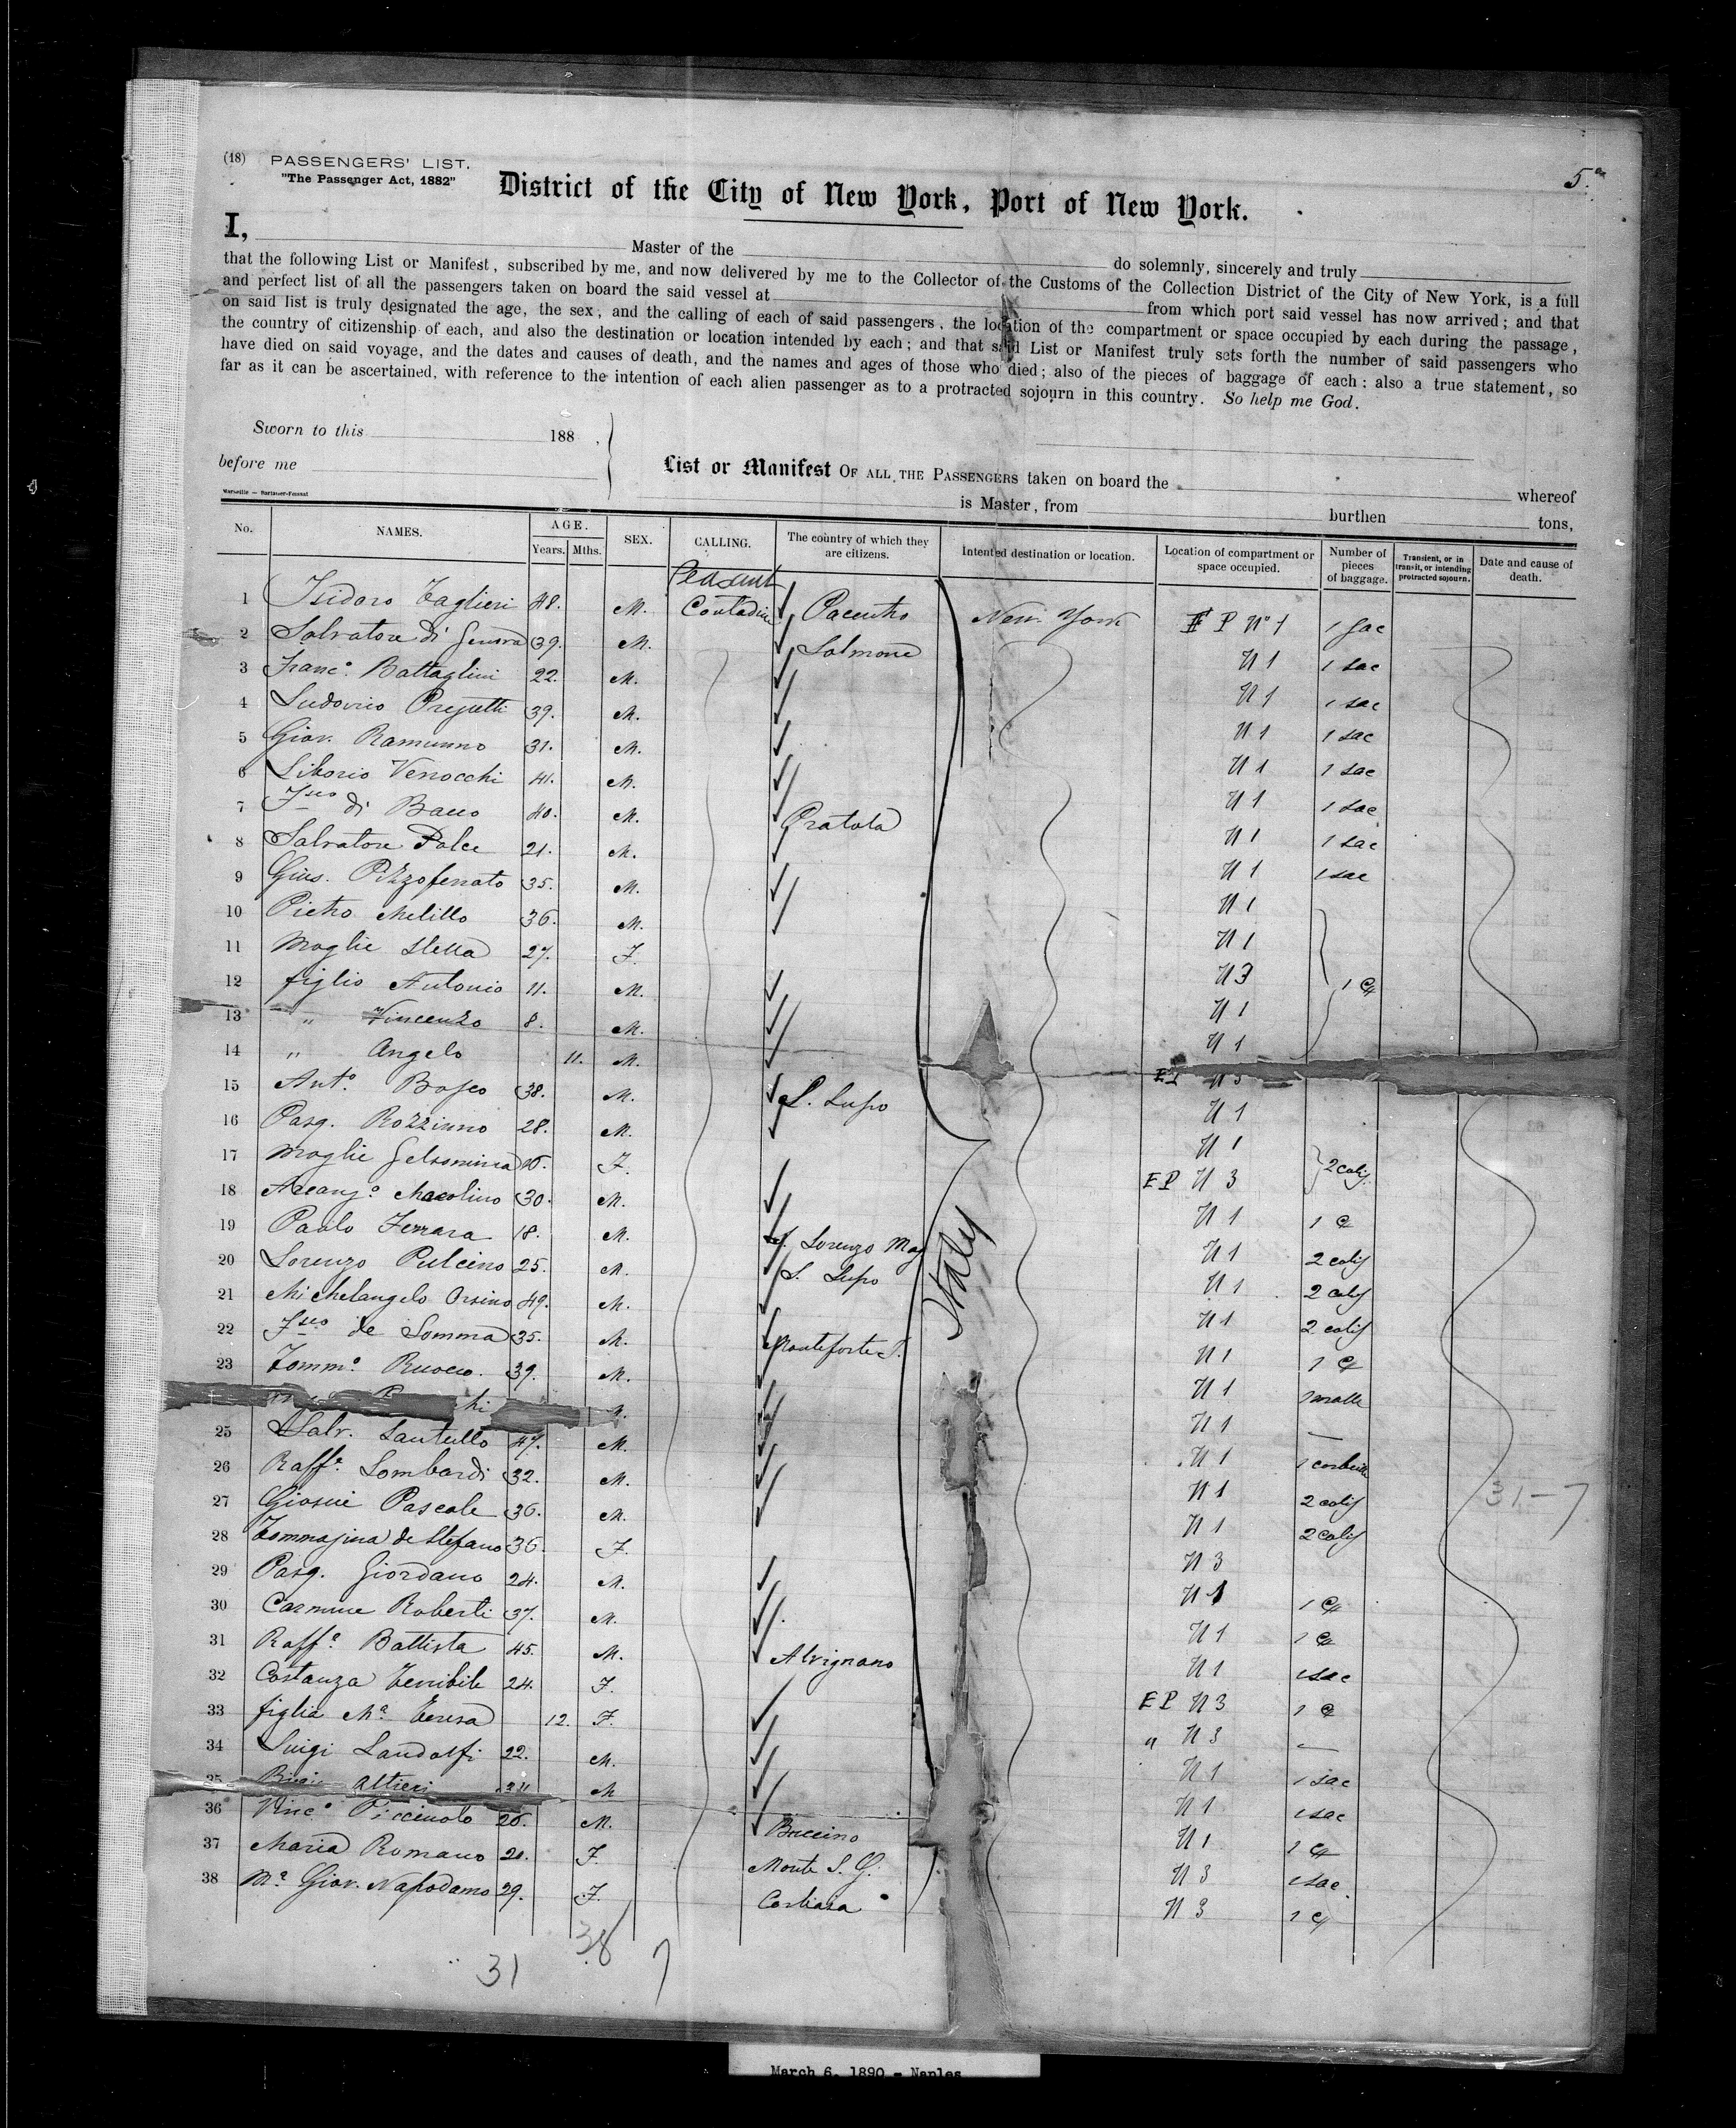 (18) PASSENGERS' LIST.
"The Passenger Act, 1882"
5.a
District of the City of New York, Port of New York.
I, Master of the do solemnly, sincerely and truly
that the following List or Manifest, subscribed by me, and now delivered by me to the Collector of the Customs of the Collection District of the City of New York, is a full
and perfect list of all the passengers taken on board the said vessel at from which port said vessel has now arrived; and that
on said list is truly designated the age, the sex, and the calling of each of said passengers, the location of the compartment or space occupied by each during the passage,
the country of citizenship of each, and also the destination or location intended by each; and that said List or Manifest truly sets forth the number of said passengers who
have died on said voyage, and the dates and causes of death, and the names and ages of those who died; also of the pieces of baggage of each: also a true statement, so
far as it can be ascertained, with reference to the intention of each alien passenger as to a protracted sojourn in this country. So help me God.
Sworn to this 188 ,
before me
List or Manifest OF ALL THE PASSENGERS taken on board the whereof
is Master, from burthen tons,
Marseille — Barlatier-Feissat
No. NAMES. AGE. Years. Mths. SEX. CALLING. The country of which they are citizens. Intented destination or location. Location of compartment or space occupied. Number of pieces of baggage. Transient, or in transit, or intending protracted sojourn. Date and cause of death.
Peasant
1 Isidoro Taglieri 48. M. Contadin Pacentro New York P N° 1 1 sac
2 Salvatore di Genova 39. M. Solmone N 1 1 sac
3 Franc.o Battaglini 22. M. N 1 1 sac
4 Ludovico 39. M. N 1 1 sac
5 Giov. Ramunno 31. M. N 1 1 sac
6 Liborio Venocchi 41. M. N 1 1 sac
7 di Bacco 40. M. Pratola N 1 1 sac
8 Salvatore Dolce 21. M. N 1 1 sac
9 Gius. Pizzoferrato 35. M. N 1
10 Pietro Melillo 36. M. N 1
11 Moglie Stella 27. F. N 3
12 figlio Antonio 11. M. N 1 1 C
13 " Vincenzo 8. M. N 1
14 " Angelo 11. M.
15 Ant.o Bosco 38. M. S. Lupo N 1
16 Pasq. Rozzinno 28. M. N 1
17 Moglie Gelsomina F. E P N 3 2 colis
18 Arcang.o 30. M. N 1 1 C
19 Paolo Ferrara 18. M. S. Lorenzo Mag N 1 2 colis
20 Lorenzo Pulcino 25. M. S. Lupo N 1 2 colis
21 Michelangelo Orsino 49. M. N 1 2 colis
22 de Somma 35. M. Monteforte I. N 1 1 C
23 Tomm.o Ruocco. 39. M. N 1 1 malle
Italy
hi N 1
25 Salv. Santullo 47. M. N 1 1 corbeille
26 Raff.e Lombardi 32. M. N 1 2 colis
27 Giosuè Pascale 36. M. N 1 2 colis
31-7
28 Tommasina de Stefano 36. F. N 3
29 Pasq. Giordano 24. M. N 1 1 C
30 Carmine Roberti 37. M. N 1 1 C
31 Raff.e Battista 45. M. Alvignano N 1 1 sac
32 Costanza Terribile 24. F. E P N 3 1 C
33 figlia M.a Teresa 12. F. " N 3
34 Luigi Landolfi 22. M. N 1 1 sac
35 Altieri M N 1 1 sac
36 Vinc.o Piccinolo 26. M. Buccino N 1 1 C
37 Maria Romano 20. F. Monte S. G. N 3 1 sac
38 M.a Giov. Napodamo 29. F. Corbara N 3 1 C
38
31 7
March 6, 1890 - Naples